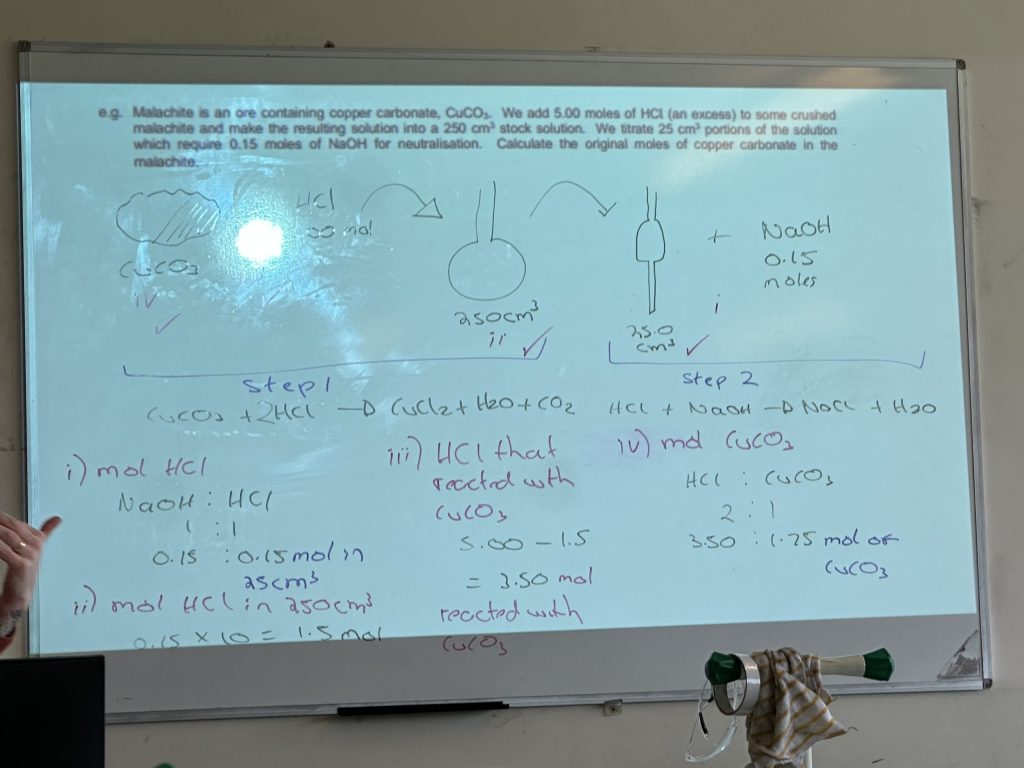 e.g. Malachite is an ore containing copper carbonate, CuCO₃. We add 5.00 moles of HCl (an excess) to some crushed
malachite and make the resulting solution into a 250 cm³ stock solution. We titrate 25 cm³ portions of the solution
which require 0.15 moles of NaOH for neutralisation. Calculate the original moles of copper carbonate in the
malachite.
HCl
mol
CuCO3
iv
250cm³
ii
25.0
cm³
+ NaOH
0.15
moles
i
Step 1
Step 2
CuCO3 + 2HCl → CuCl2 + H2O + CO2
HCl + NaOH → NaCl + H2O
i) mol HCl
NaOH : HCl
1 : 1
0.15 : 0.15 mol in
25cm³
ii) mol HCl in 250cm³
0.15 × 10 = 1.5 mol
iii) HCl that
reacted with
CuCO3
5.00 – 1.5
= 3.50 mol
reacted with
CuCO3
iv) mol CuCO3
HCl : CuCO3
2 : 1
3.50 : 1.75 mol of
CuCO3